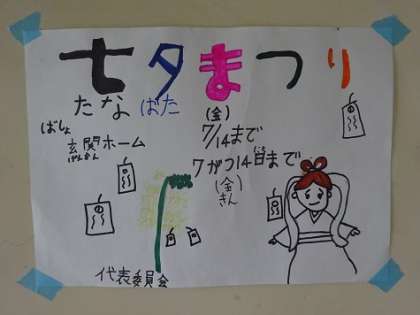 七夕まつり
たなばた
(金)
7/14まで
ばしょ
玄関ホーム
げんかん
7がつ14日まで
にち
(金)
きん
代表委員会